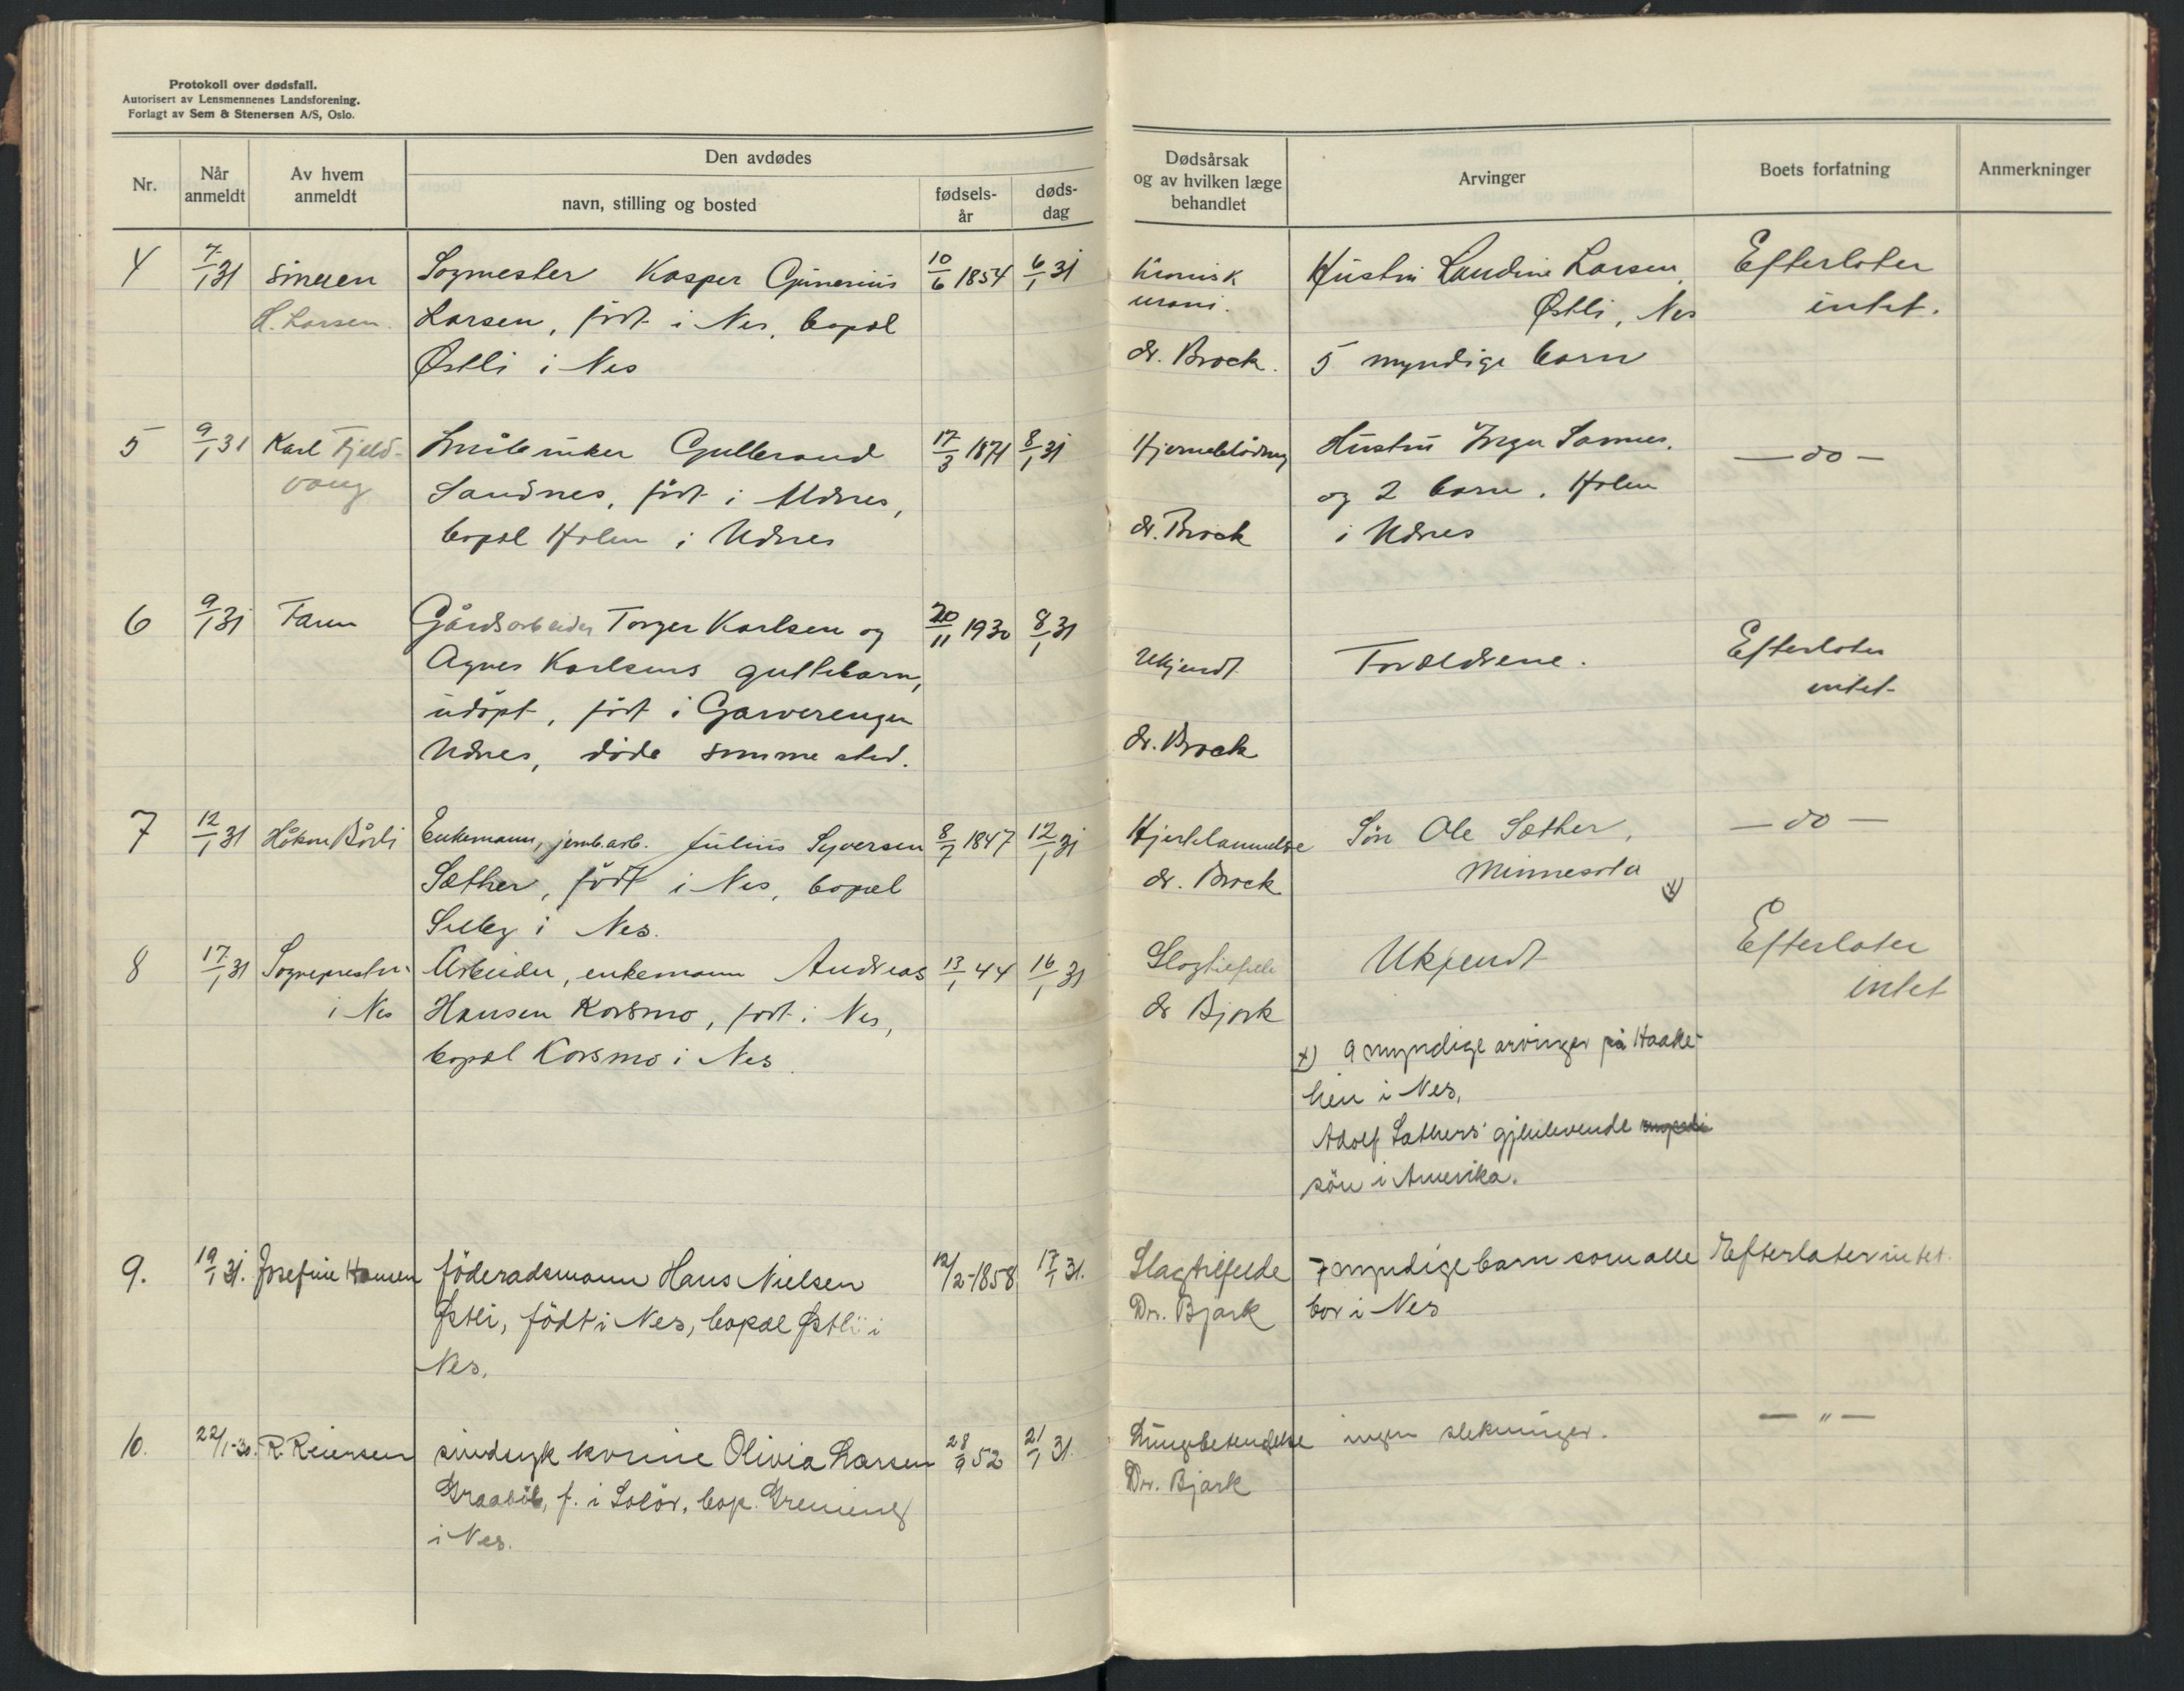 Protokoll over dødsfall.
Autorisert av Lensmennenes Landsforening.
Forlagt av Sem & Stenersen A/S, Oslo.
Nr.
Når anmeldt
Av hvem anmeldt
Den avdødes
navn, stilling og bosted
fødsels-år
døds-dag
Dødsårsak og av hvilken læge behandlet
Arvinger
Boets forfatning
Anmerkninger
4 7/1 31 H. Larsen.
Sagmester Kasper Gunerius
Larsen, født i Nes, bopæl
Østli i Nes
10/6 1854 6/1 31
Kronisk
urani.
dr. Brock.
Hustru Laudine Larsen,
Østli, Nes
5 myndige barn
Efterlater
intet.
5 9/1 31 Karl Fjeld-
vang
Småbruker Gulbrand
Sandnes, født i Udnes,
bopæl Holm i Udnes
17/3 1871 8/1 31
Hjerneblödning
dr. Brock
Hustru Inga Sannes.
og 2 barn. Holm
i Udnes
— do —
6 9/1 31 Faren
Gårdsarbeider Torger Karlsen og
Agnes Karlsens guttebarn,
udöpt, født i Garverengen
Udnes, döde samme sted.
20/11 1930 8/1 31
Ukjendt
dr. Brock
Forældrene.
Efterlater
intet
7 12/1 31 Håkon Bårli
Enkemann, jernb.arb. Julius Syversen
Sæther, födt i Nes, bopæl
i Nes.
8/7 1847 12/1 31
Hjertelammelse
dr. Brock
Sön Ole Sæther,
Minnesota
x)
— do —
8 17/1 31 Sognepresten
i Nes
Arbeider, enkemann Andreas
Hansen Korsmo, født i Nes,
bopæl Korsmo i Nes.
13/1 44 16/1 31
Slagtilfelle
dr Bjørk
Ukjendt
Efterlater
intet
x) 9 myndige arvinger på Haake-
lien i Nes,
Adolf Sæthers gjenlevende
sön i Amerika.
9. 19/1 31. Josefine Hansen
föderadsmann Hans Nielsen
Østli, födt i Nes, bopæl Østli i
Nes.
12/2-1858 17/1 31.
Slagtilfelde
Dr. Bjørk
7 myndige barn som alle
bor i Nes
Efterlater intet.
10. 22/1-30. R. Reiersen
sindsyk kvinne Olivia Larsen
f. i Solör, bop.
i Nes.
28/9 52 21/1 31.
Lungebetendelse
Dr. Bjørk
ingen slektninger.
— " —